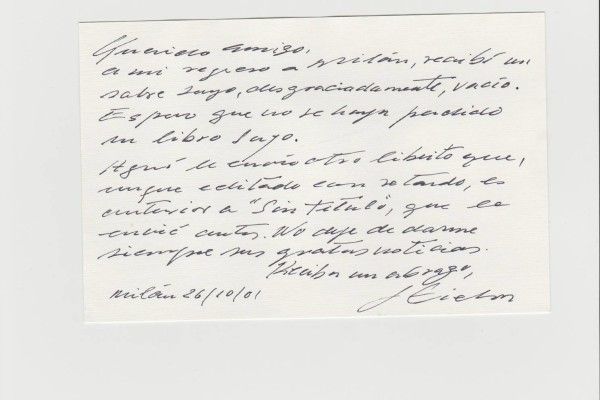 Querido amigo,
a mi regreso a Milán, recibí un
sobre suyo, desgraciadamente, vacío.
Espero que no se haya perdido
un libro suyo.
Aquí le envío otro librito que,
unque editado con retardo, es
anterior a "Sin título", que le
envié antes. No deje de darme
siempre sus gratas noticias.
Reciba un abrazo,
Milán 26/10/01
J Eielson